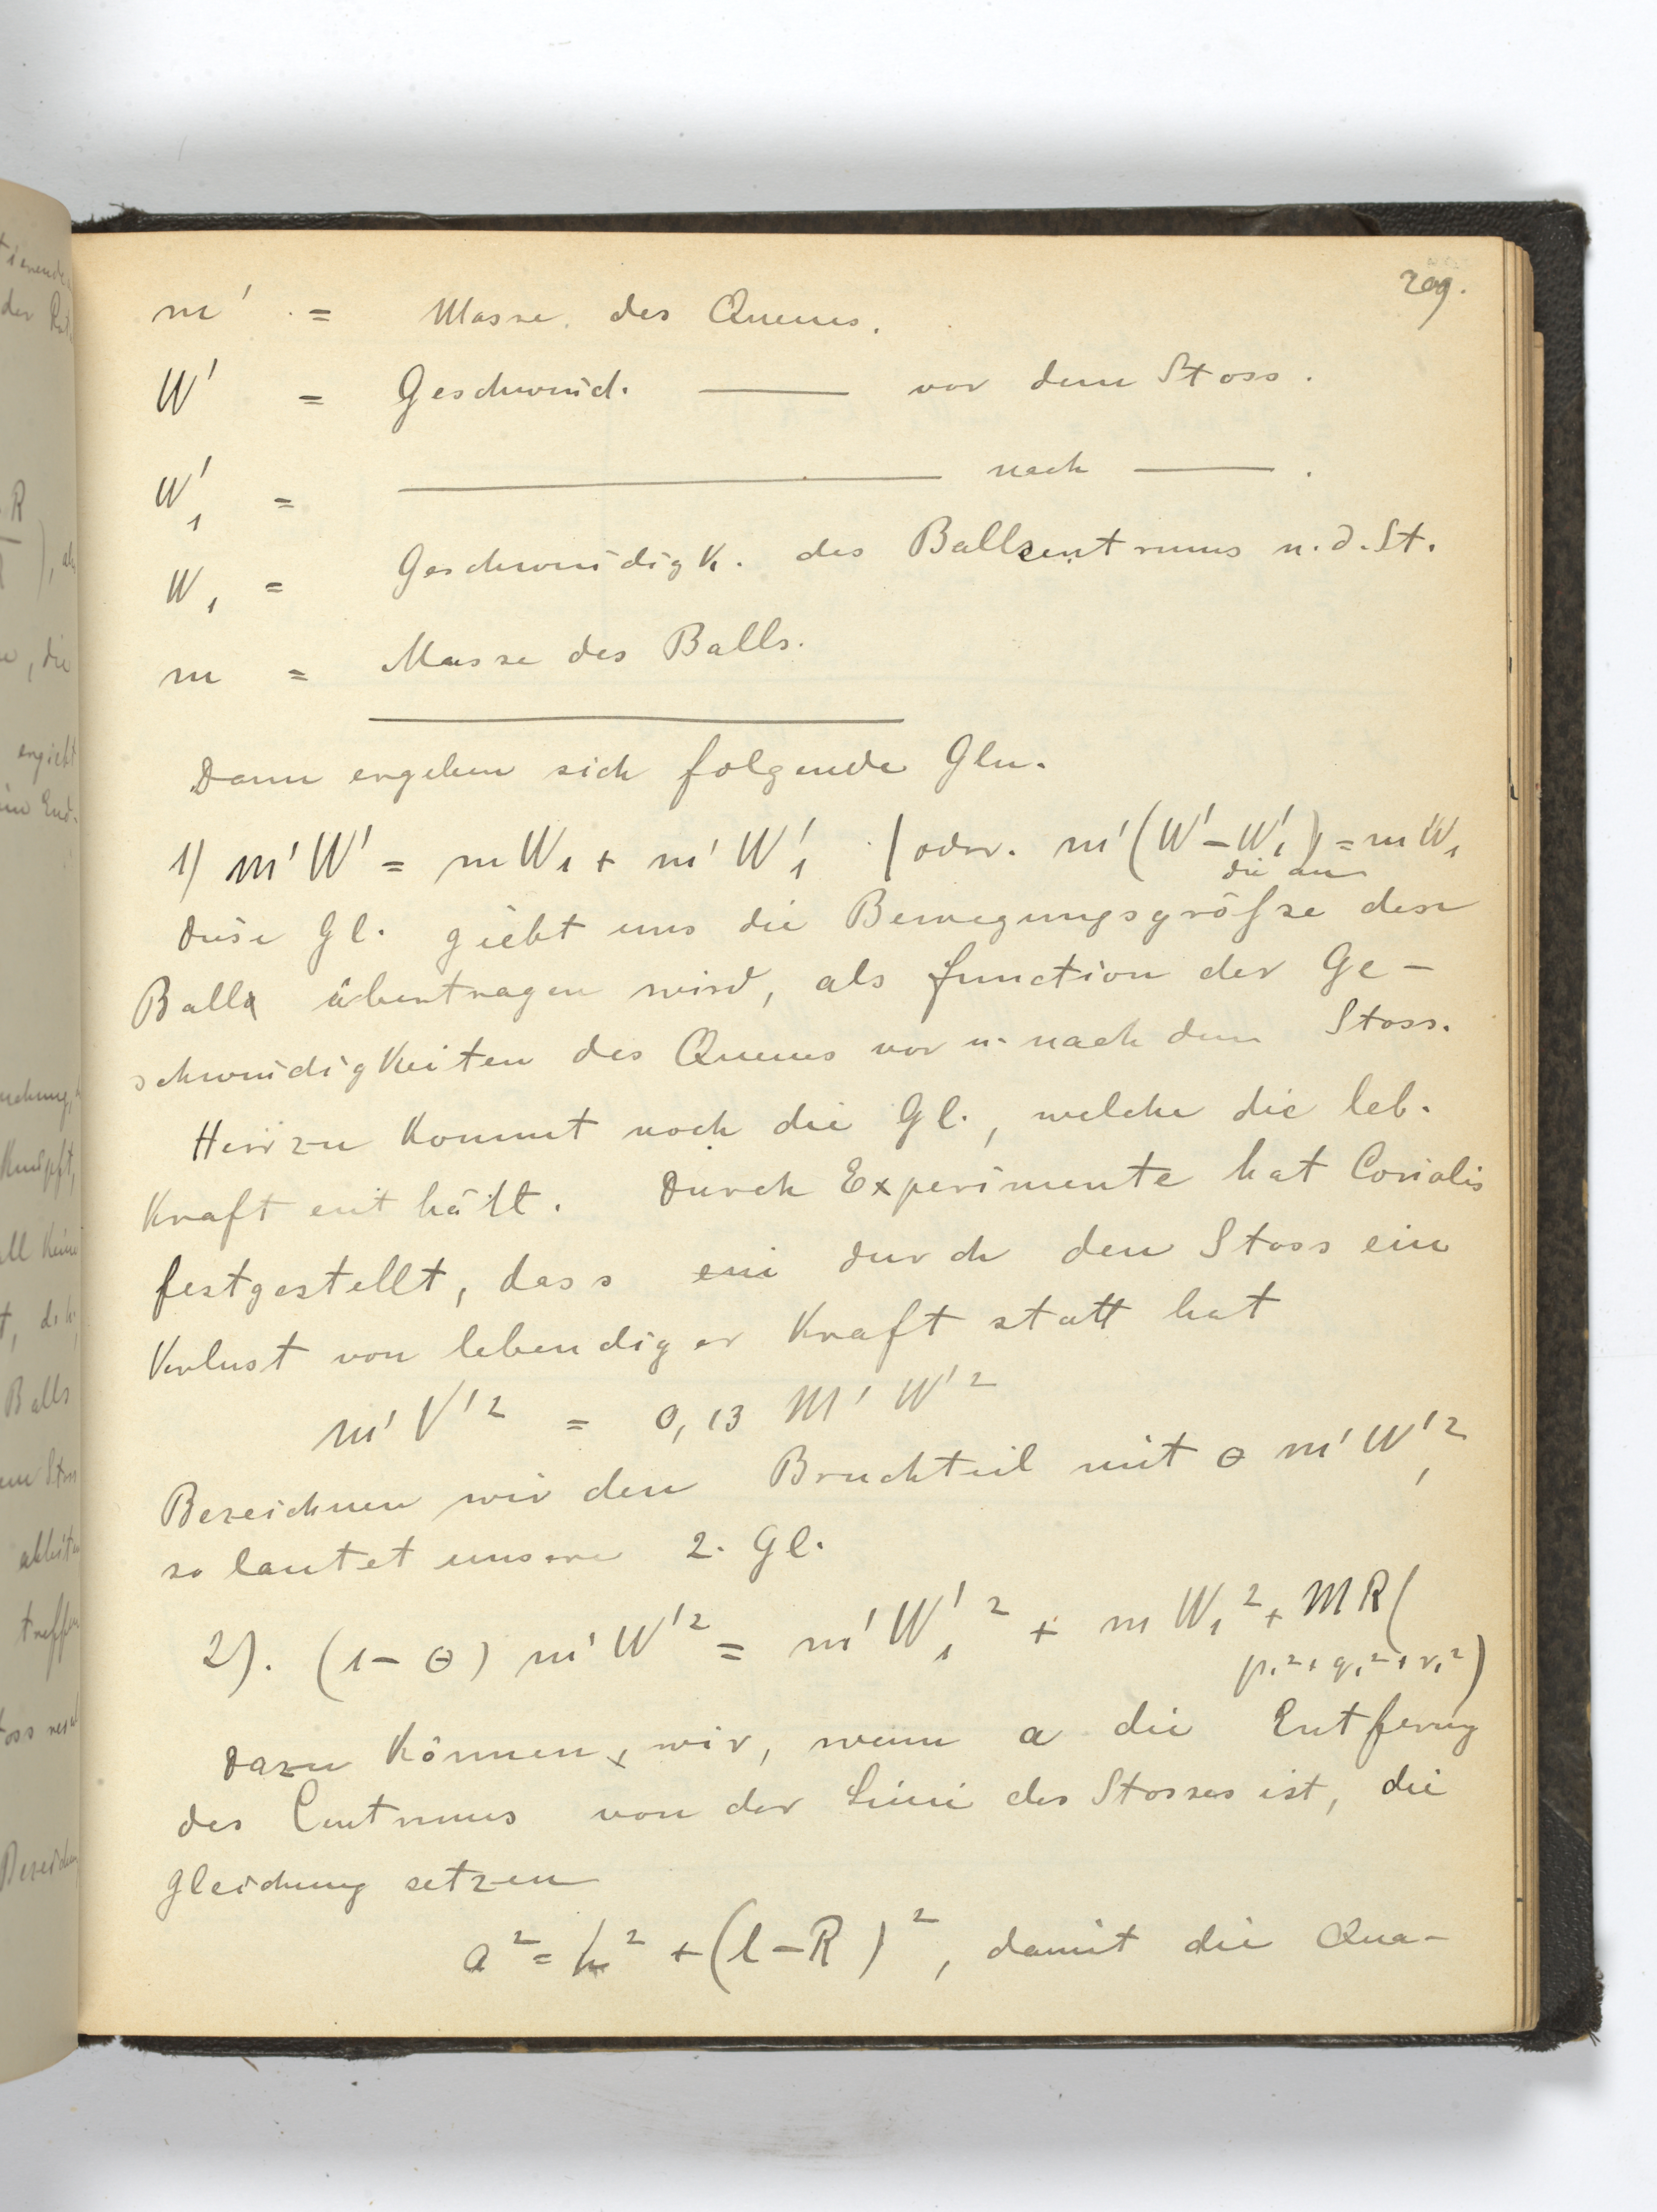 209.
m' = Masse des Queues.
W' = Geschwind. ——— vor dem Stoss.
W'₁ = ——————— nach ———.
W₁ = Geschwindigk. des Ballzentrums n. d. St.
m = Masse des Balls.
Dann ergeben sich folgende Gln.
1) m'W' = mW₁ + m'W'₁ | oder. m'(W' – W'₁) = mW₁
die an
Diese Gl. giebt uns die Bewegungsgröfse den
Ball übertragen wird, als function der Ge-
schwindigkeiten des Queues vor u. nach dem Stoss.
Hierzu kommt noch die Gl., welche die leb.
Kraft enthält. Durch Experimente hat Coriolis
festgestellt, dass ein durch den Stoss ein
Verlust von lebendiger Kraft statt hat
m'V'² = 0,13 M'W'²
Bezeichnen wir den Bruchteil mit θ m'W'₁²
so lautet unsere 2. Gl.
2). (1 – θ) m'W'² = m'W'₁² + mW₁² + MR(
p₁² + q₁² + r₁²)
Dazu können wir, wenn a die Entfernung
des Centrums von der Linie des Stosses ist, die
Gleichung setzen
a² = h² + (l – R)², damit die Qua-